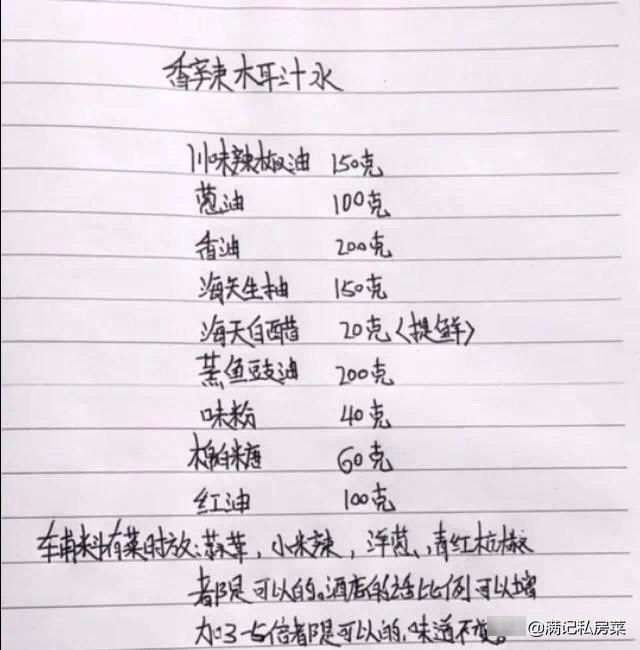 香辣木耳汁水
川味辣椒油 150克
葱油 100克
香油 200克
海天生抽 150克
海天白醋 20克〈提鲜〉
蒸鱼豉油 200克
味粉 40克
棉白糖 60克
红油 100克
辅料有菜时放:蒜茸,小米辣,洋葱,青红杭椒
都是可以的。酒店的话比例可以增
加3-5倍都是可以的,味道不变。
@满记私房菜